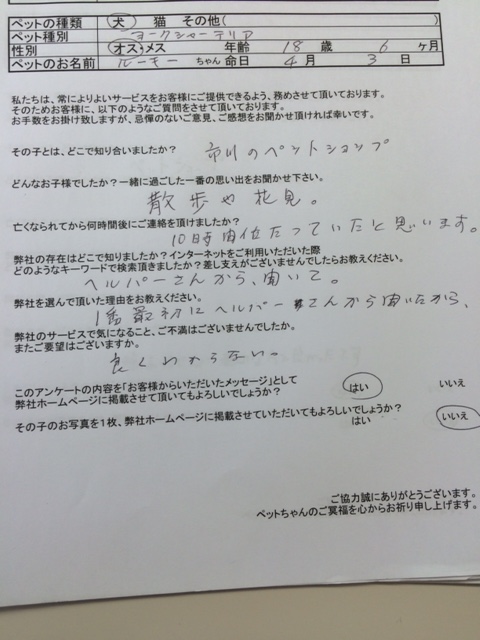 ペットの種類 犬 猫 その他( )
ペット種別 ヨークシャーテリア
性別 オス・メス 年齢 18 歳 6 ヶ月
ペットのお名前 ルーキー ちゃん 命日 4 月 3 日
私たちは、常によりよいサービスをお客様にご提供できるよう、務めさせて頂いております。
そのためお客様に、以下のようなご質問をさせて頂いております。
お手数をお掛け致しますが、忌憚のないご意見、ご感想をお聞かせ頂ければ幸いです。
その子とは、どこで知り合いましたか? 市川のペットショップ
どんなお子様でしたか?一緒に過ごした一番の思い出をお聞かせ下さい。
散歩や花見。
亡くなられてから何時間後にご連絡を頂けましたか?
10時間位たっていたと思います。
弊社の存在はどこで知りましたか?インターネットをご利用いただいた際
どのようなキーワードで検索頂きましたか?差し支えがございませんでしたらお教えください。
ヘルパーさんから、聞いて。
弊社を選んで頂いた理由をお教えください。
1番最初にヘルパーさんから聞いたから、
弊社のサービスで気になること、ご不満はございませんでしたか。
またご要望はございますか。
良くわからない。
このアンケートの内容を「お客様からいただいたメッセージ」として
弊社ホームページに掲載させて頂いてもよろしいでしょうか? はい いいえ
その子のお写真を1枚、弊社ホームページに掲載させていただいてもよろしいでしょうか?
はい いいえ
ご協力誠にありがとうございます。
ペットちゃんのご冥福を心からお祈り申し上げます。